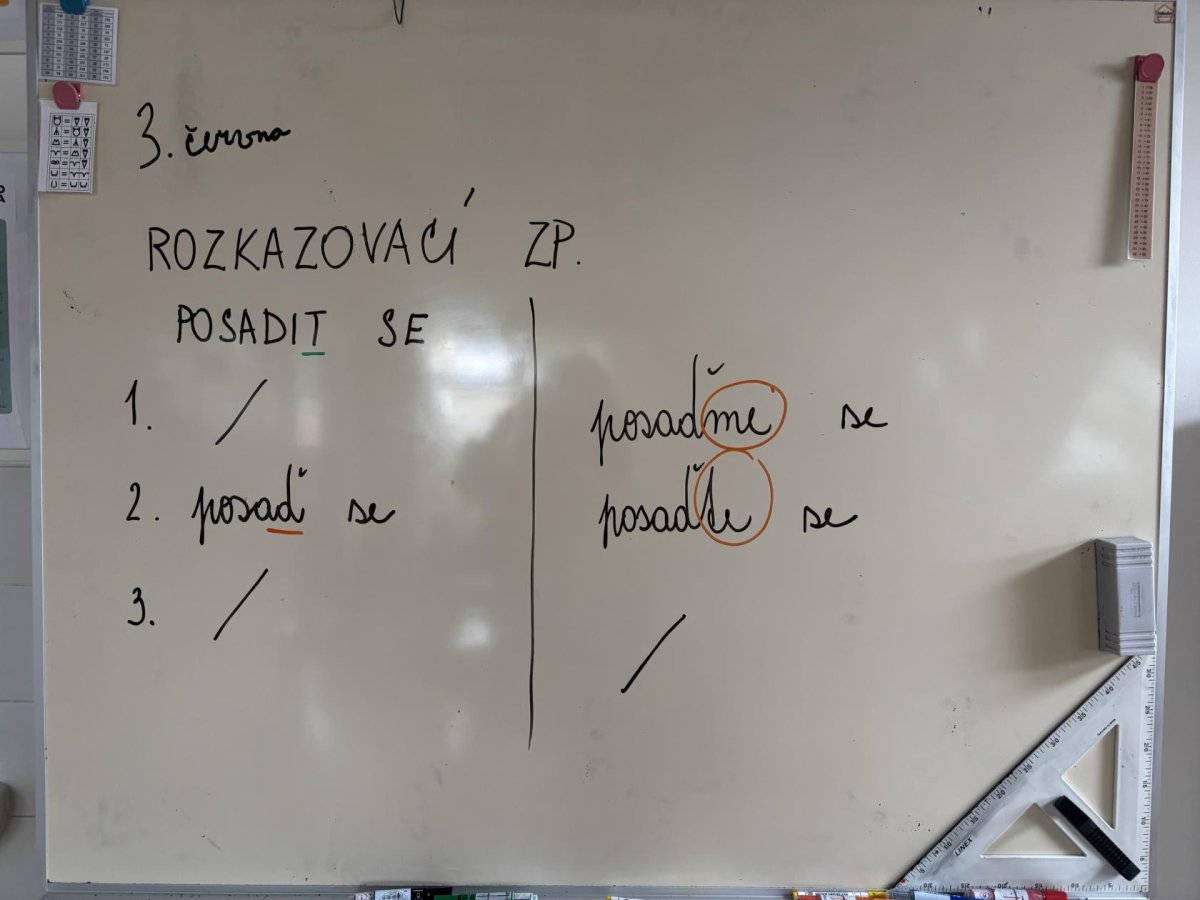 3. června
ROZKAZOVACÍ ZP.
POSADIT SE
1. / posaďme se
2. posaď se posaďte se
3. / /
LINEX